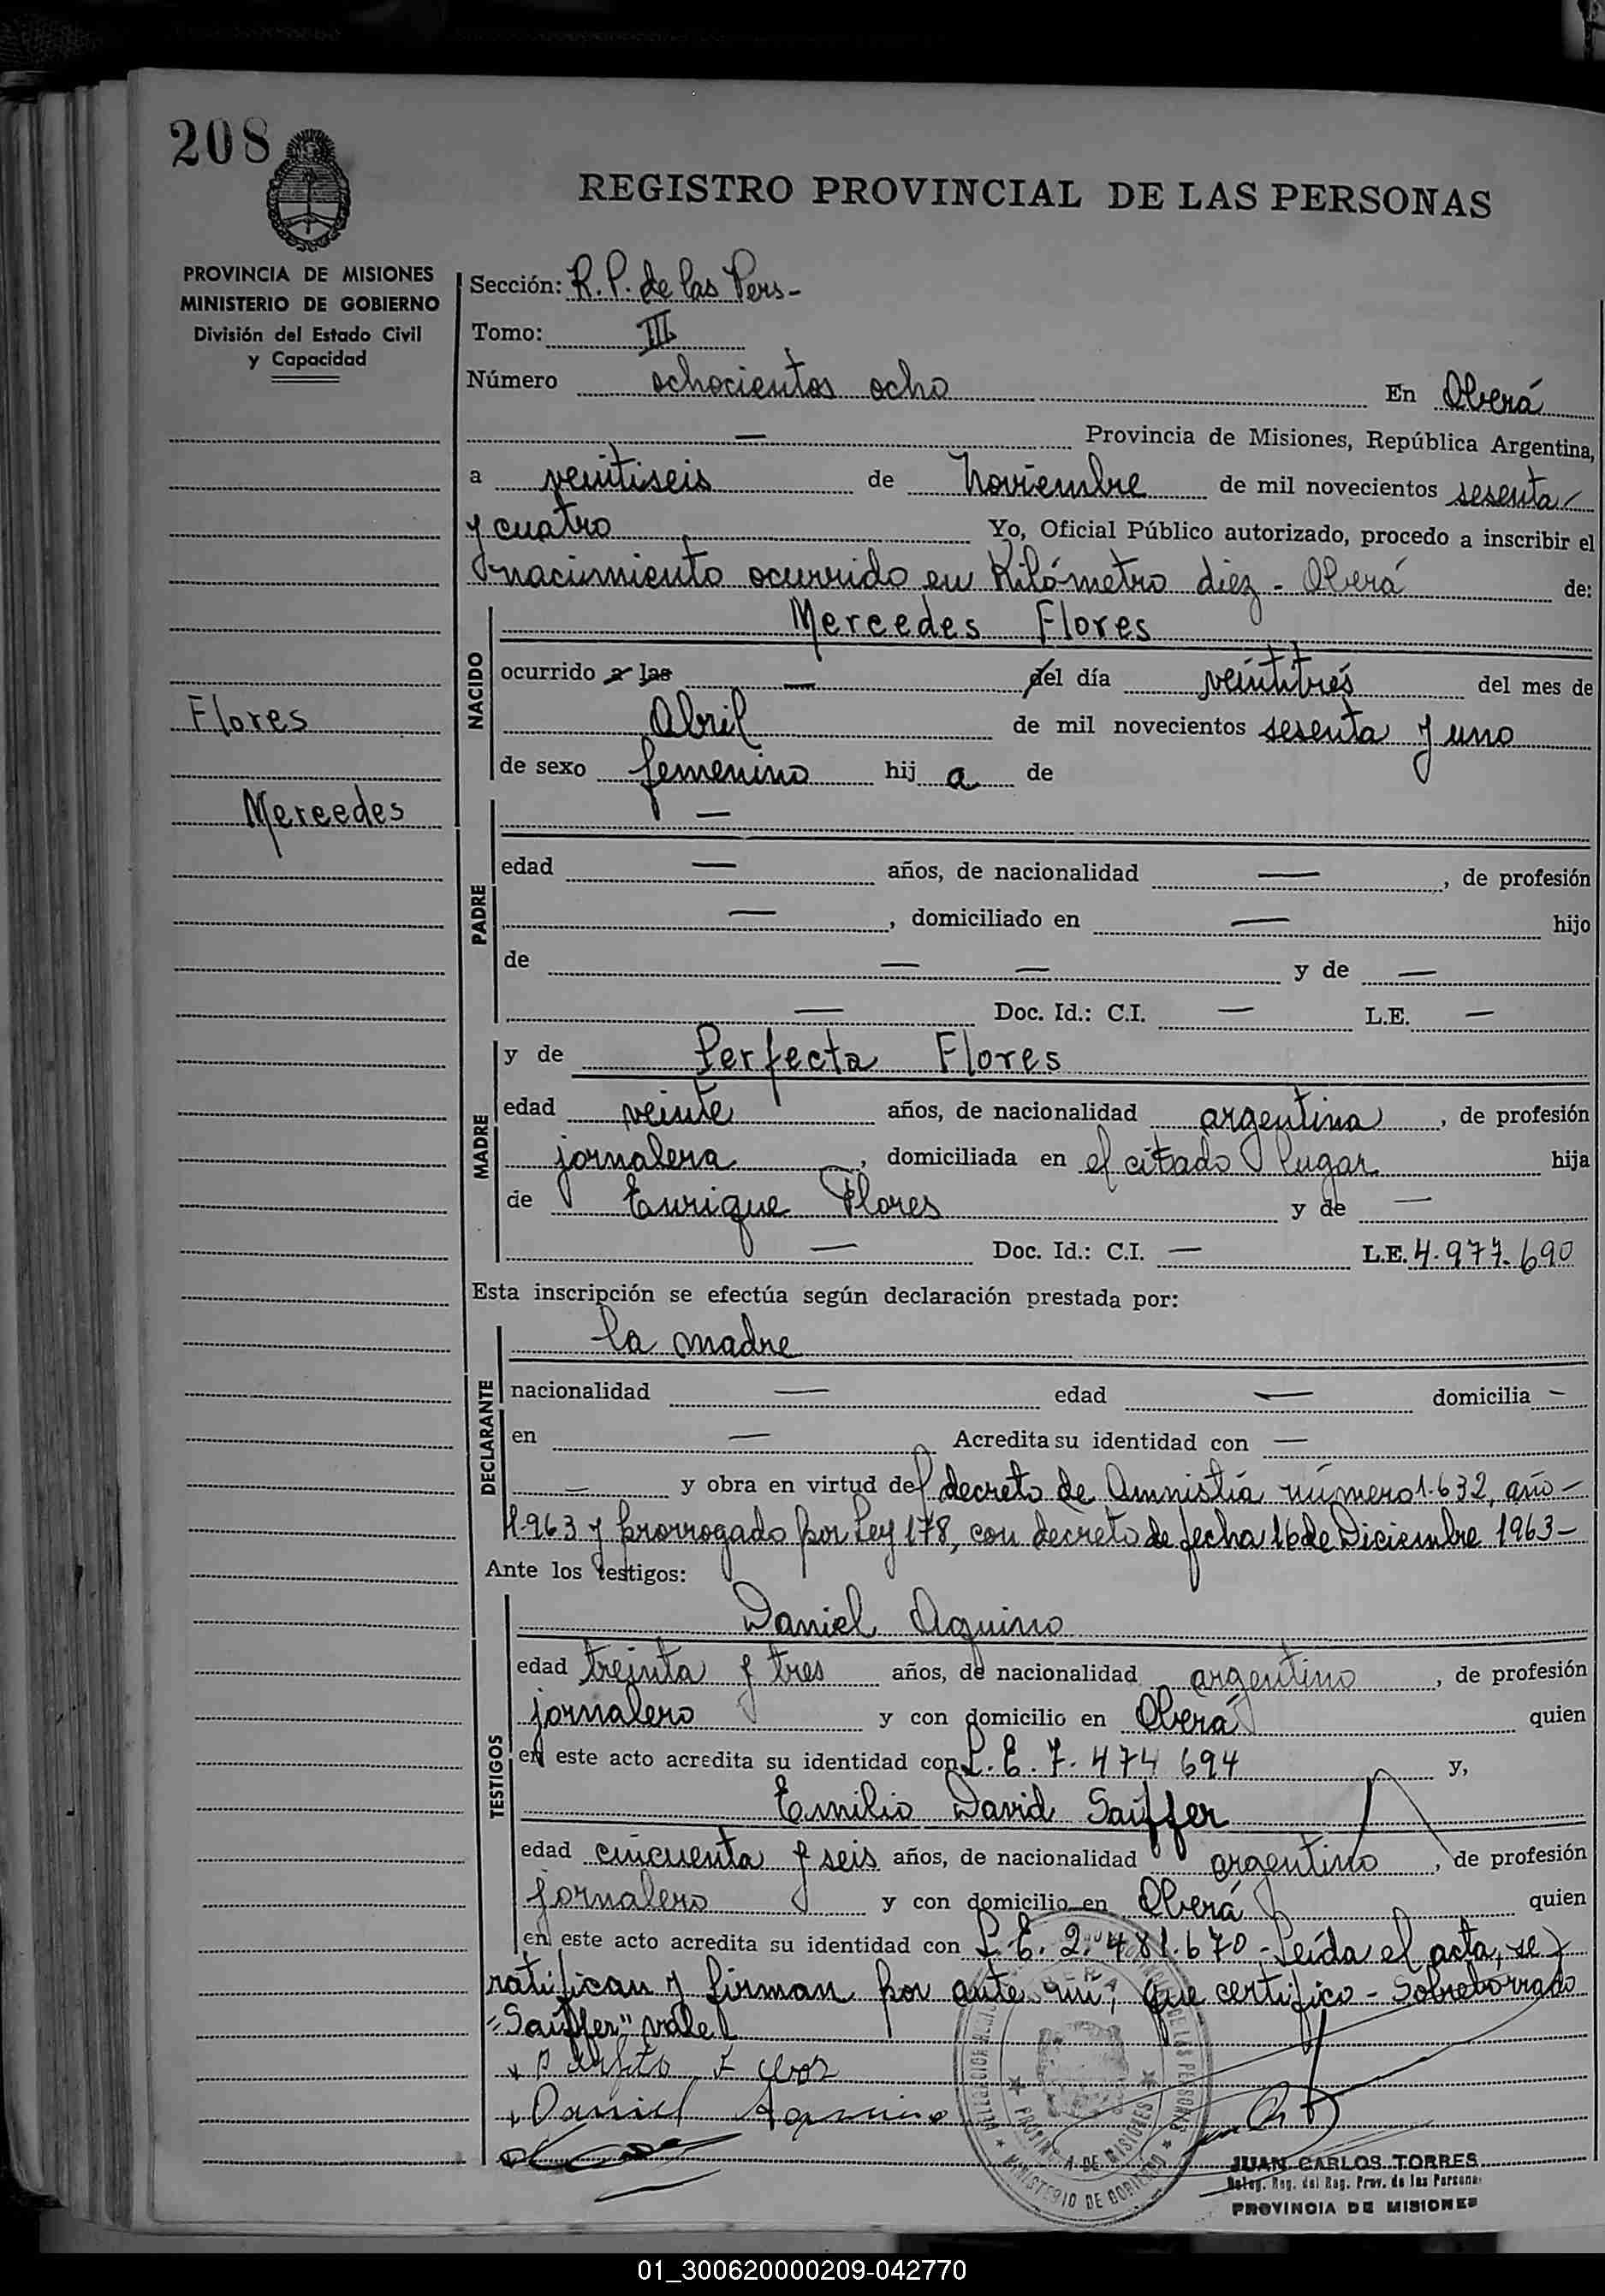 208
REGISTRO PROVINCIAL DE LAS PERSONAS
PROVINCIA DE MISIONES
MINISTERIO DE GOBIERNO
División del Estado Civil
y Capacidad
Sección: R. P. de las Pers-
Tomo: III
Número ochocientos ocho En Oberá
— Provincia de Misiones, República Argentina,
a veintiseis de Noviembre de mil novecientos sesenta
y cuatro Yo, Oficial Público autorizado, procedo a inscribir el
nacimiento ocurrido en Kilómetro diez - Oberá de:
NACIDO
Mercedes Flores
ocurrido a las — del día veintitrés del mes de
Flores
Abril de mil novecientos sesenta y uno
de sexo femenino hija de
Mercedes
PADRE
—
edad — años, de nacionalidad —, de profesión
—, domiciliado en — hijo
de — — y de —
— Doc. Id.: C.I. — L.E. —
MADRE
y de Perfecta Flores
edad veinte años, de nacionalidad argentina, de profesión
jornalera, domiciliada en el citado lugar hija
de Enrique Flores y de —
— Doc. Id.: C.I. — L.E. 4.977.690
Esta inscripción se efectúa según declaración prestada por:
DECLARANTE
la madre
nacionalidad — edad — domicilia —
en — Acredita su identidad con —
— y obra en virtud del decreto de Amnistía número 1.632, año-
1.963 y prorrogado por Ley 178, con decreto de fecha 16 de Diciembre 1963-
Ante los testigos:
TESTIGOS
Daniel Aquino
edad treinta y tres años, de nacionalidad argentino, de profesión
jornalero y con domicilio en Oberá quien
en este acto acredita su identidad con L. E. 7. 474 694 y,
Emilio David Saiffer
edad cincuenta y seis años, de nacionalidad argentino, de profesión
jornalero y con domicilio en Oberá quien
en este acto acredita su identidad con L. E. 2. 481.670 - Leída el acta, se
ratifican y firman por ante mi; que certifico - Sobreborrado
"Saiffer", vale
Daniel Aquino
PROVINCIA DE MISIONES
MINISTERIO DE GOBIERNO
JUAN CARLOS TORRES
Deleg. Reg. del Reg. Prov. de las Personas
PROVINCIA DE MISIONES
01_300620000209-042770